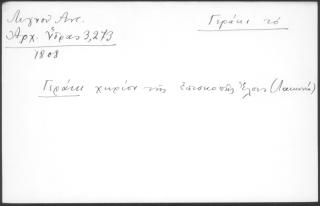 Λιγνού Αντ.
Γεράκι τό
Αρχ. Ύδρας 3,273
1808
Γεράκι χωρίον της επισκοπής Έλους (Λακωνία)